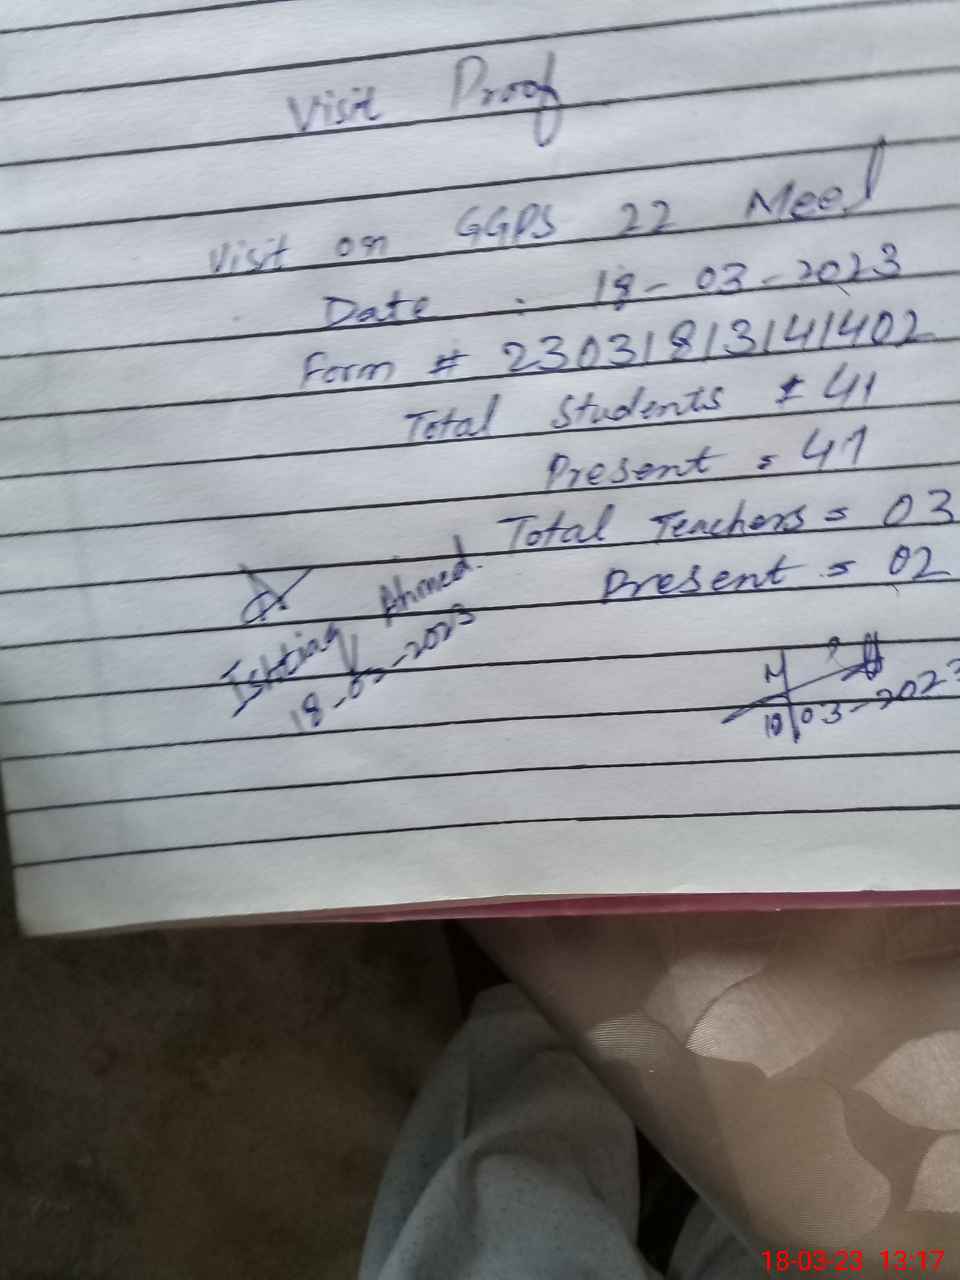 Visit Proof
Visit on GGPS 22 Meel
Date : 18-03-2023
Form # 23031813141402
Total Students = 41
Present = 41
Total Teachers = 03
Present = 02
Ishtiaq Ahmed.
18-03-2023
18/03-2023
18-03-23 13:17